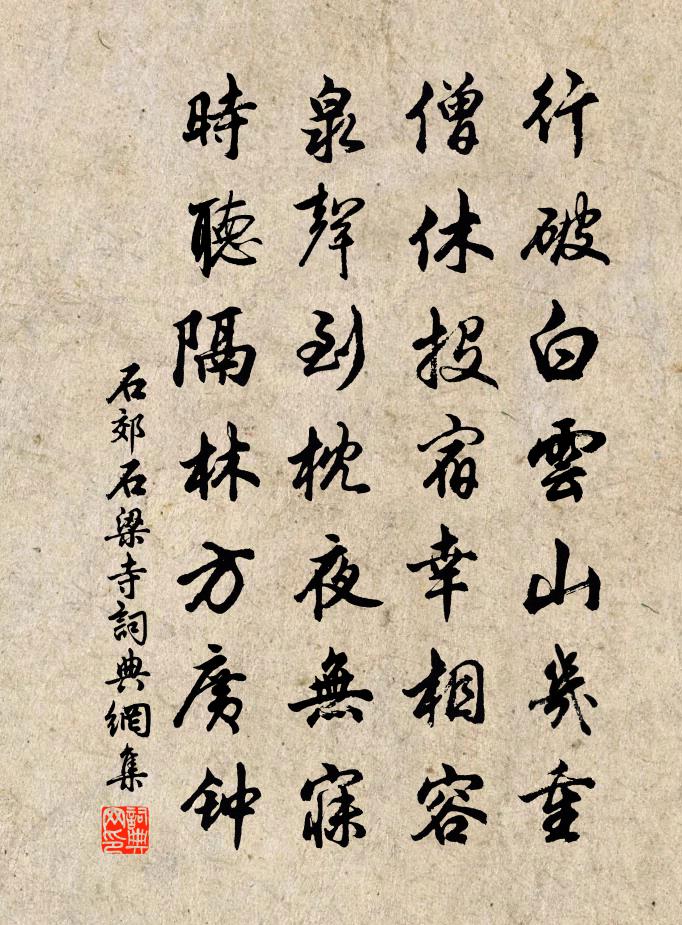 行破白雲山幾重
僧休投宿幸相容
泉聲到枕夜無寐
時聽隔林方廣钟
石郊石梁寺詞典網集
詞典网印